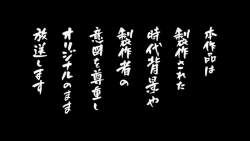 本作品は
製作された
時代背景や
製作者の
意図を尊重し
オリジナルのまま
放送します